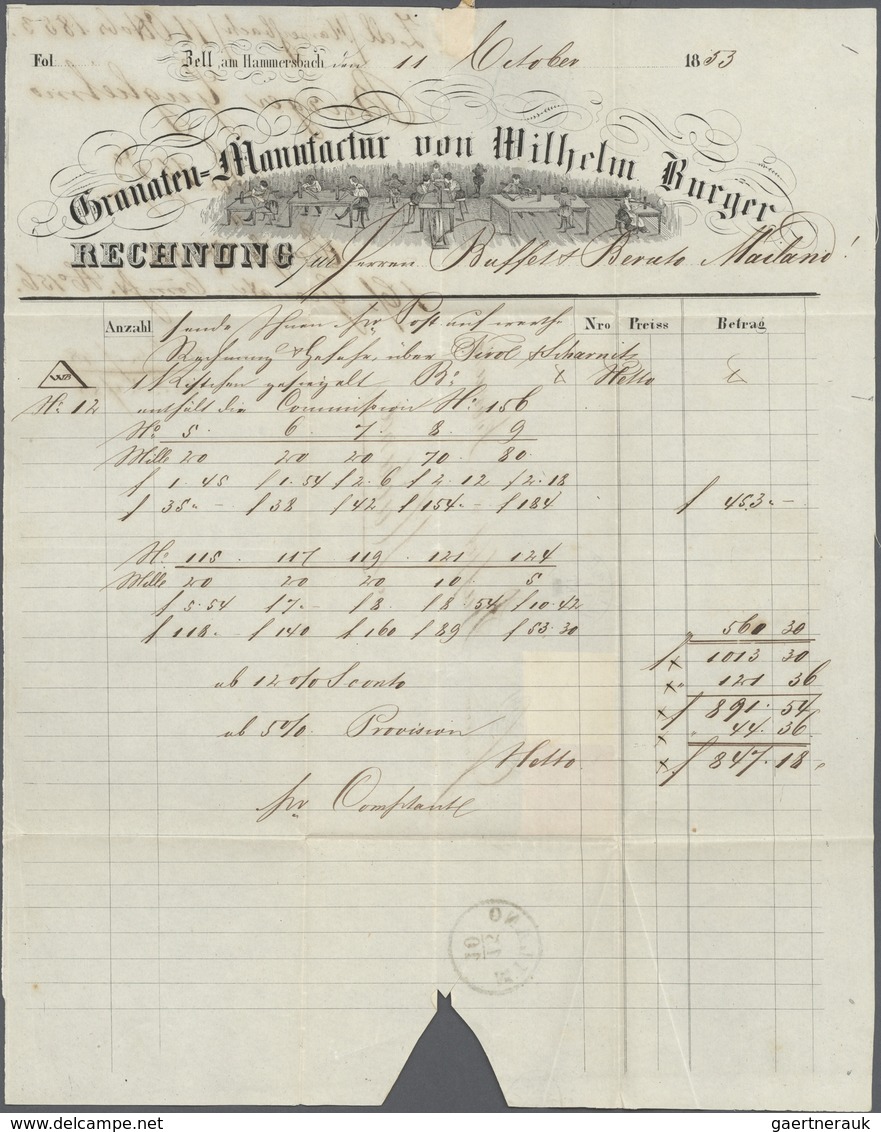 Fol.
Zell am Hammersbach den 11 October 1853
Granaten=Manufactur von Wilhelm Burger
RECHNUNG für Herren Buffet & Beruto Mailand!
Anzahl Nro Preiss Betrag
sende Ihnen pr Post auf werthe
Rechnung & Gefahr, über Tirol & Scharnitz
1 Kistchen gesiegelt Bo Netto
WB
No. 12 enthält die Commission No. 156
No. 5 6 7. 8. 9
Mille 20 20 20 70. 80.
f 1. 45 f 1. 54 f 2. 6 f 2. 12 f 2. 18
f 35.- f 38 f 42 f 154.- f 184 f 453.-
No. 115. 117 119. 121 124
Mille 20 20 20 10. 5
f 5. 54 f 7.- f 8. f 8. 54 f 10. 42
f 118.- f 140 f 160 f 89 f 53. 30
560 30
f 1013 30
ab 12 o/o Sconto 121 36
f 891. 54
ab 5 o/o. Provision 44. 36
Netto f 847. 18
pr Comptant
MILANO
10
12
gaertnerauk
www.delcampe.net